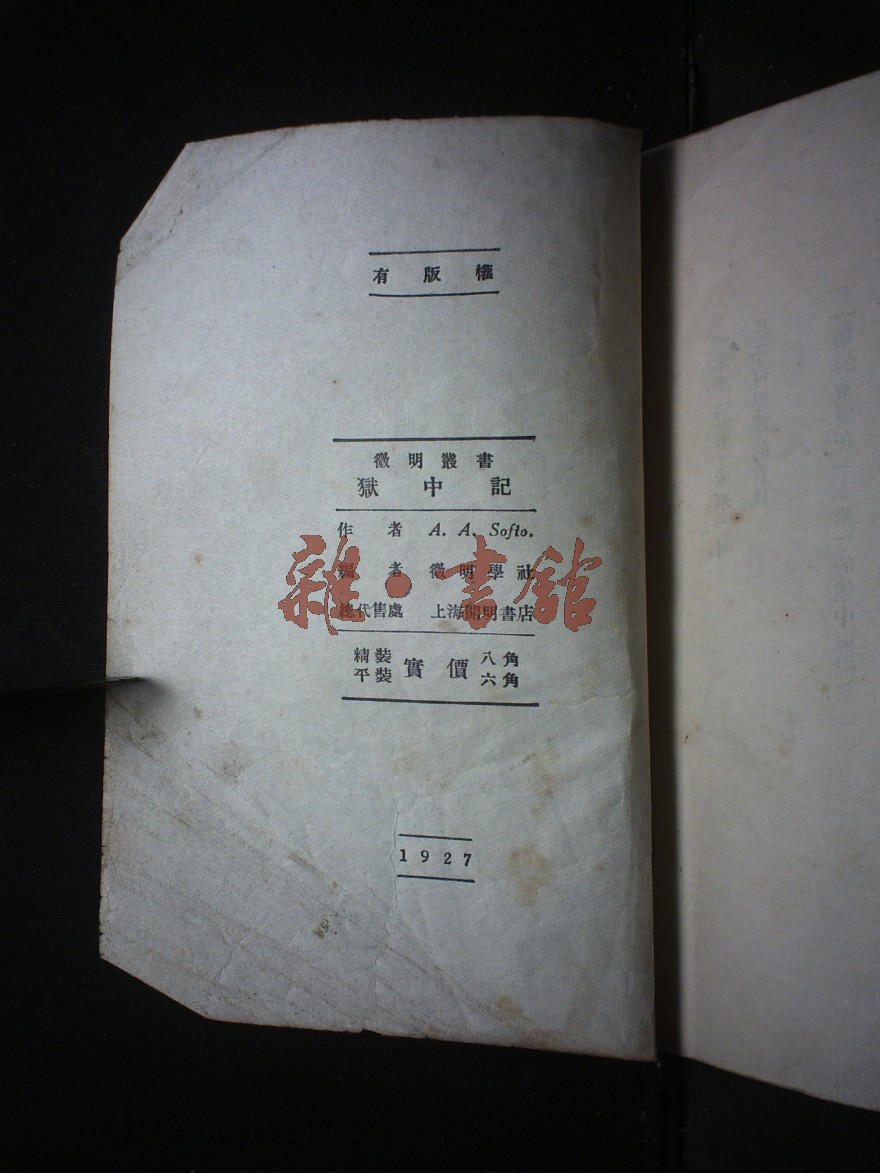 有版權
微明叢書
獄中記
作者 A. A. Sofio.
編者 微明學社
總代售處 上海開明書店
精裝 實價 八角
平裝 六角
1927
雜·書館